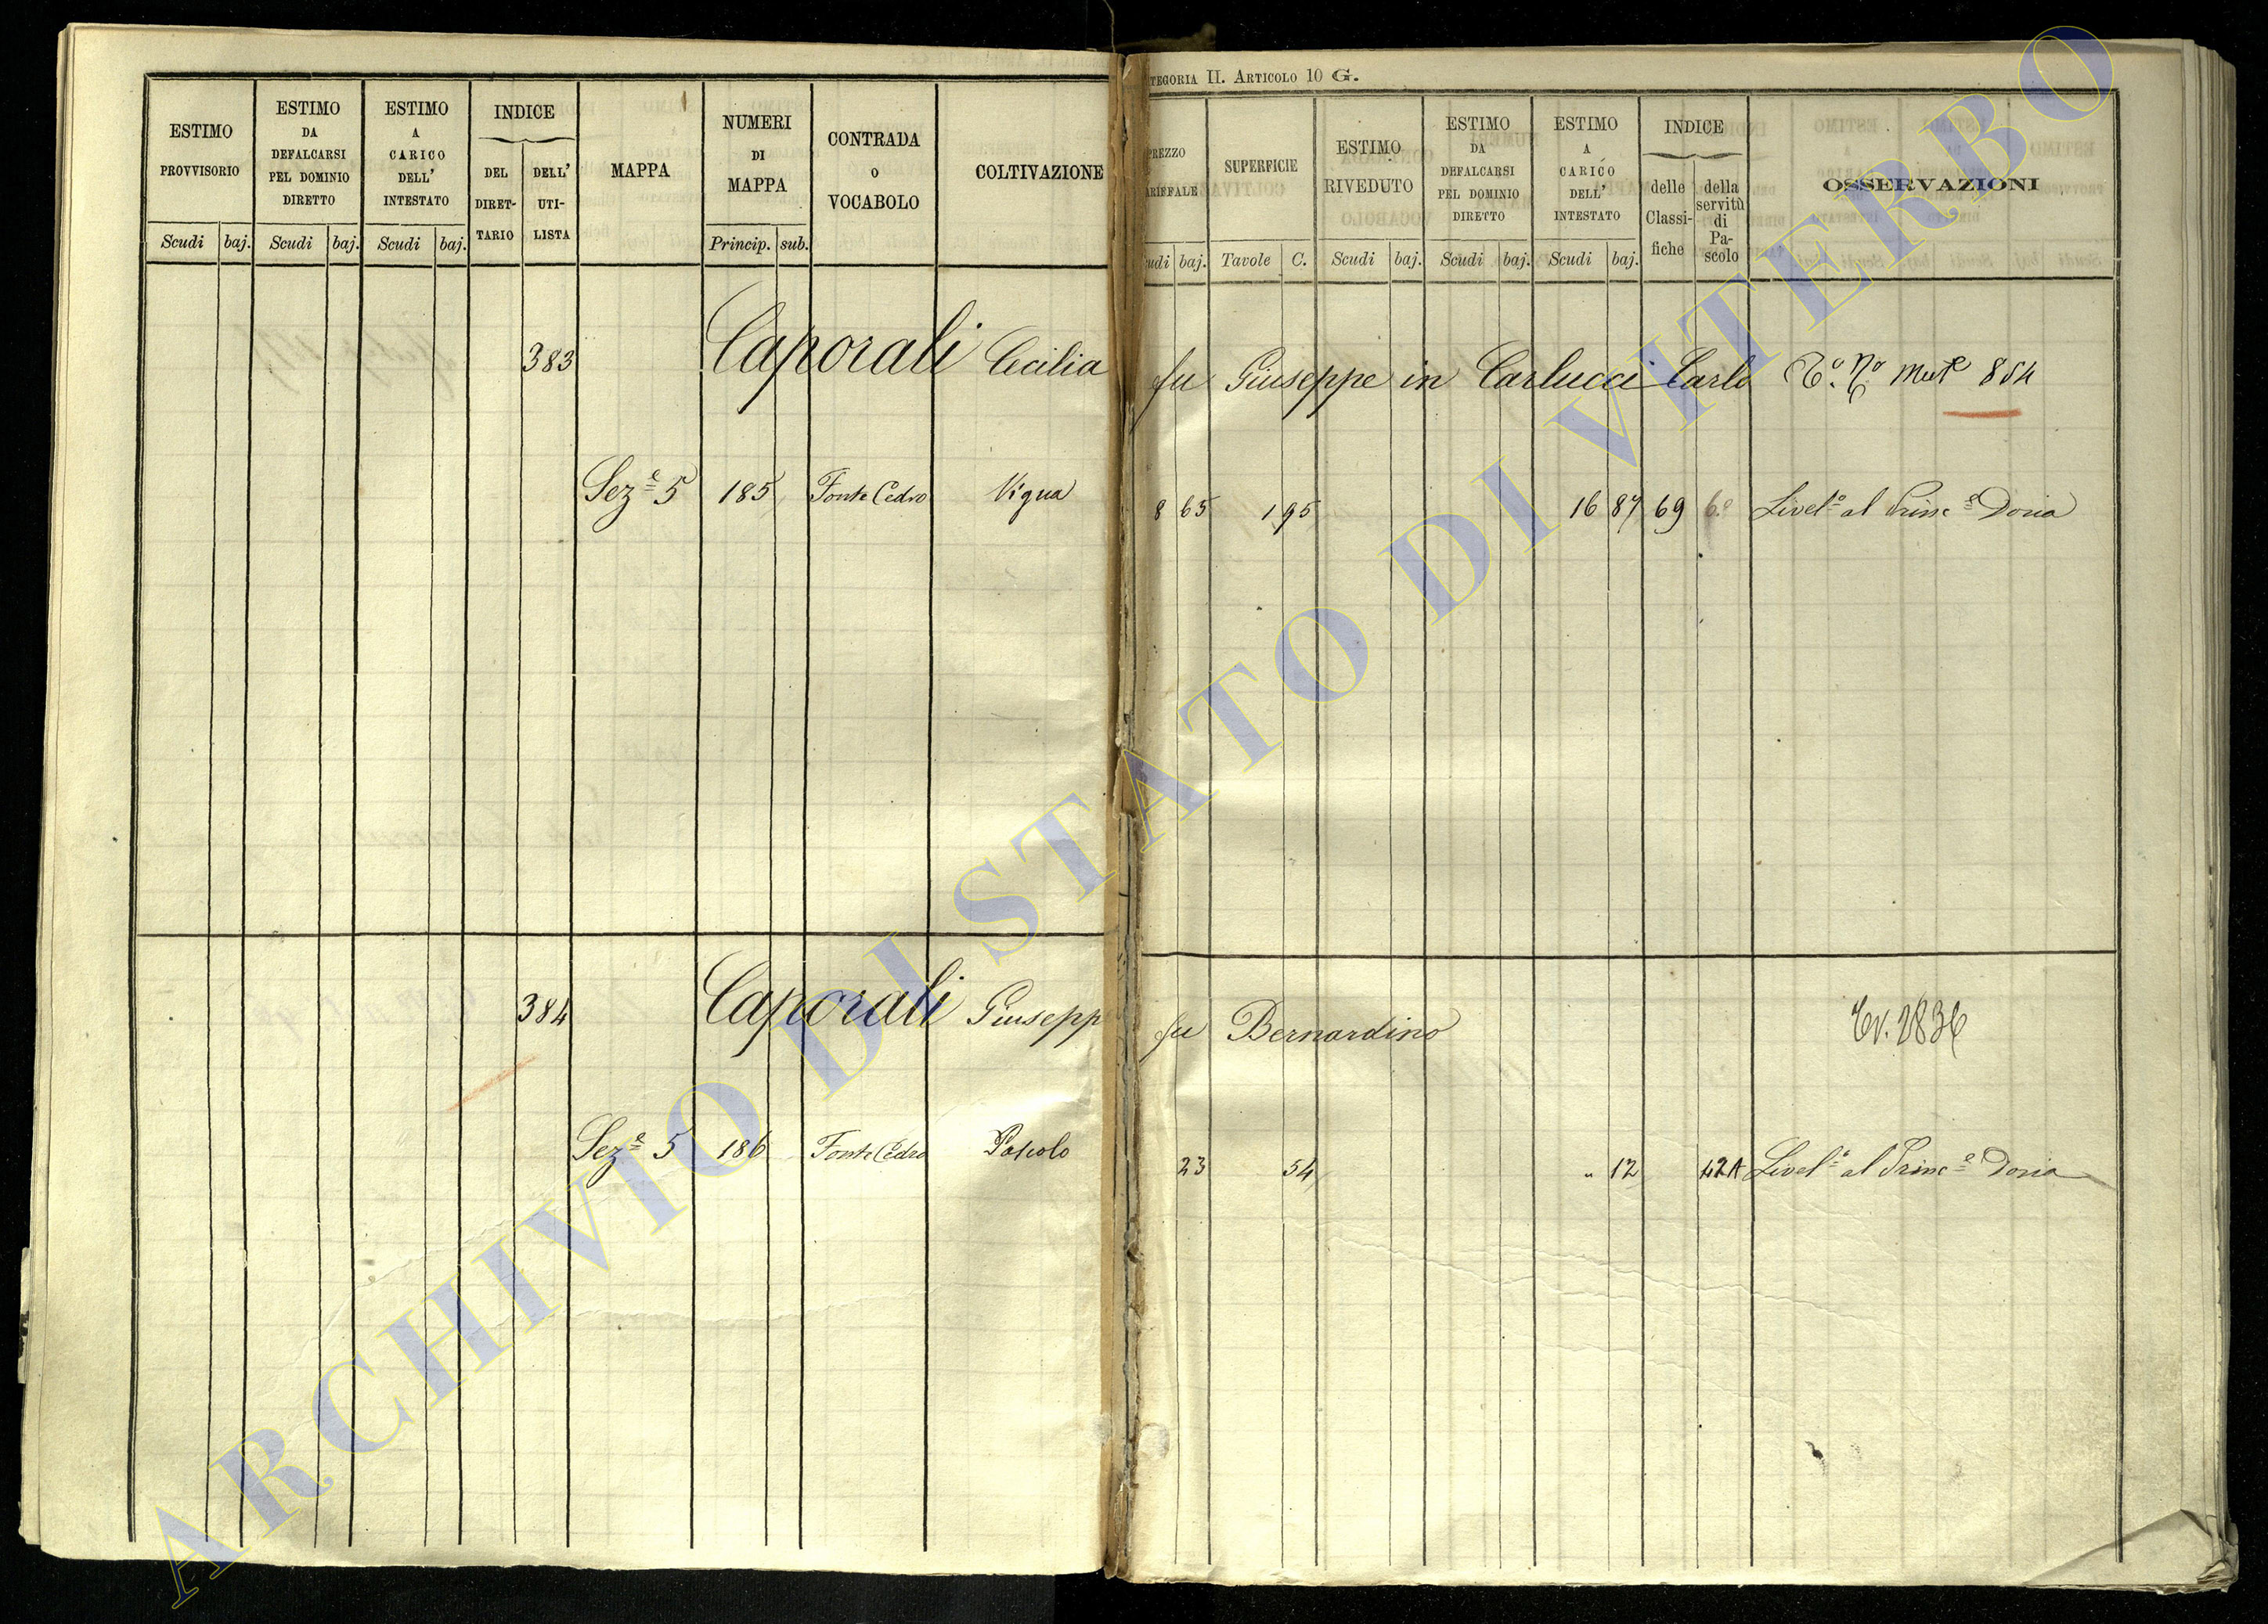 CATEGORIA II. ARTICOLO 10 G.
ESTIMO PROVVISORIO
ESTIMO DA DEFALCARSI PEL DOMINIO DIRETTO
ESTIMO A CARICO DELL' INTESTATO
INDICE
DEL DIRETTARIO
DELL' UTILISTA
MAPPA
NUMERI DI MAPPA
CONTRADA O VOCABOLO
COLTIVAZIONE
Scudi baj. Scudi baj. Scudi baj. Princip. sub.
PREZZO TARIFFALE
SUPERFICIE
ESTIMO RIVEDUTO
ESTIMO DA DEFALCARSI PEL DOMINIO DIRETTO
ESTIMO A CARICO DELL' INTESTATO
INDICE
delle Classi- fiche
della servitù di Pa- scolo
OSSERVAZIONI
Scudi baj. Tavole C. Scudi baj. Scudi baj. Scudi baj.
383 Caporali Cecilia fu Giuseppe in Carlucci Carlo 854
Sez.e 5 185 Fonte Cedro Vigna 8 65 1 95 16 87 69 6o Livel.o al Princ.e Doria
384 Caporali Giusepp fu Bernardino
Sez.e 5 186 Fonte Cedro Pascolo 23 54 " 12 42A Livel.o al Princ.e Doria
ARCHIVIO DI STATO DI VITERBO